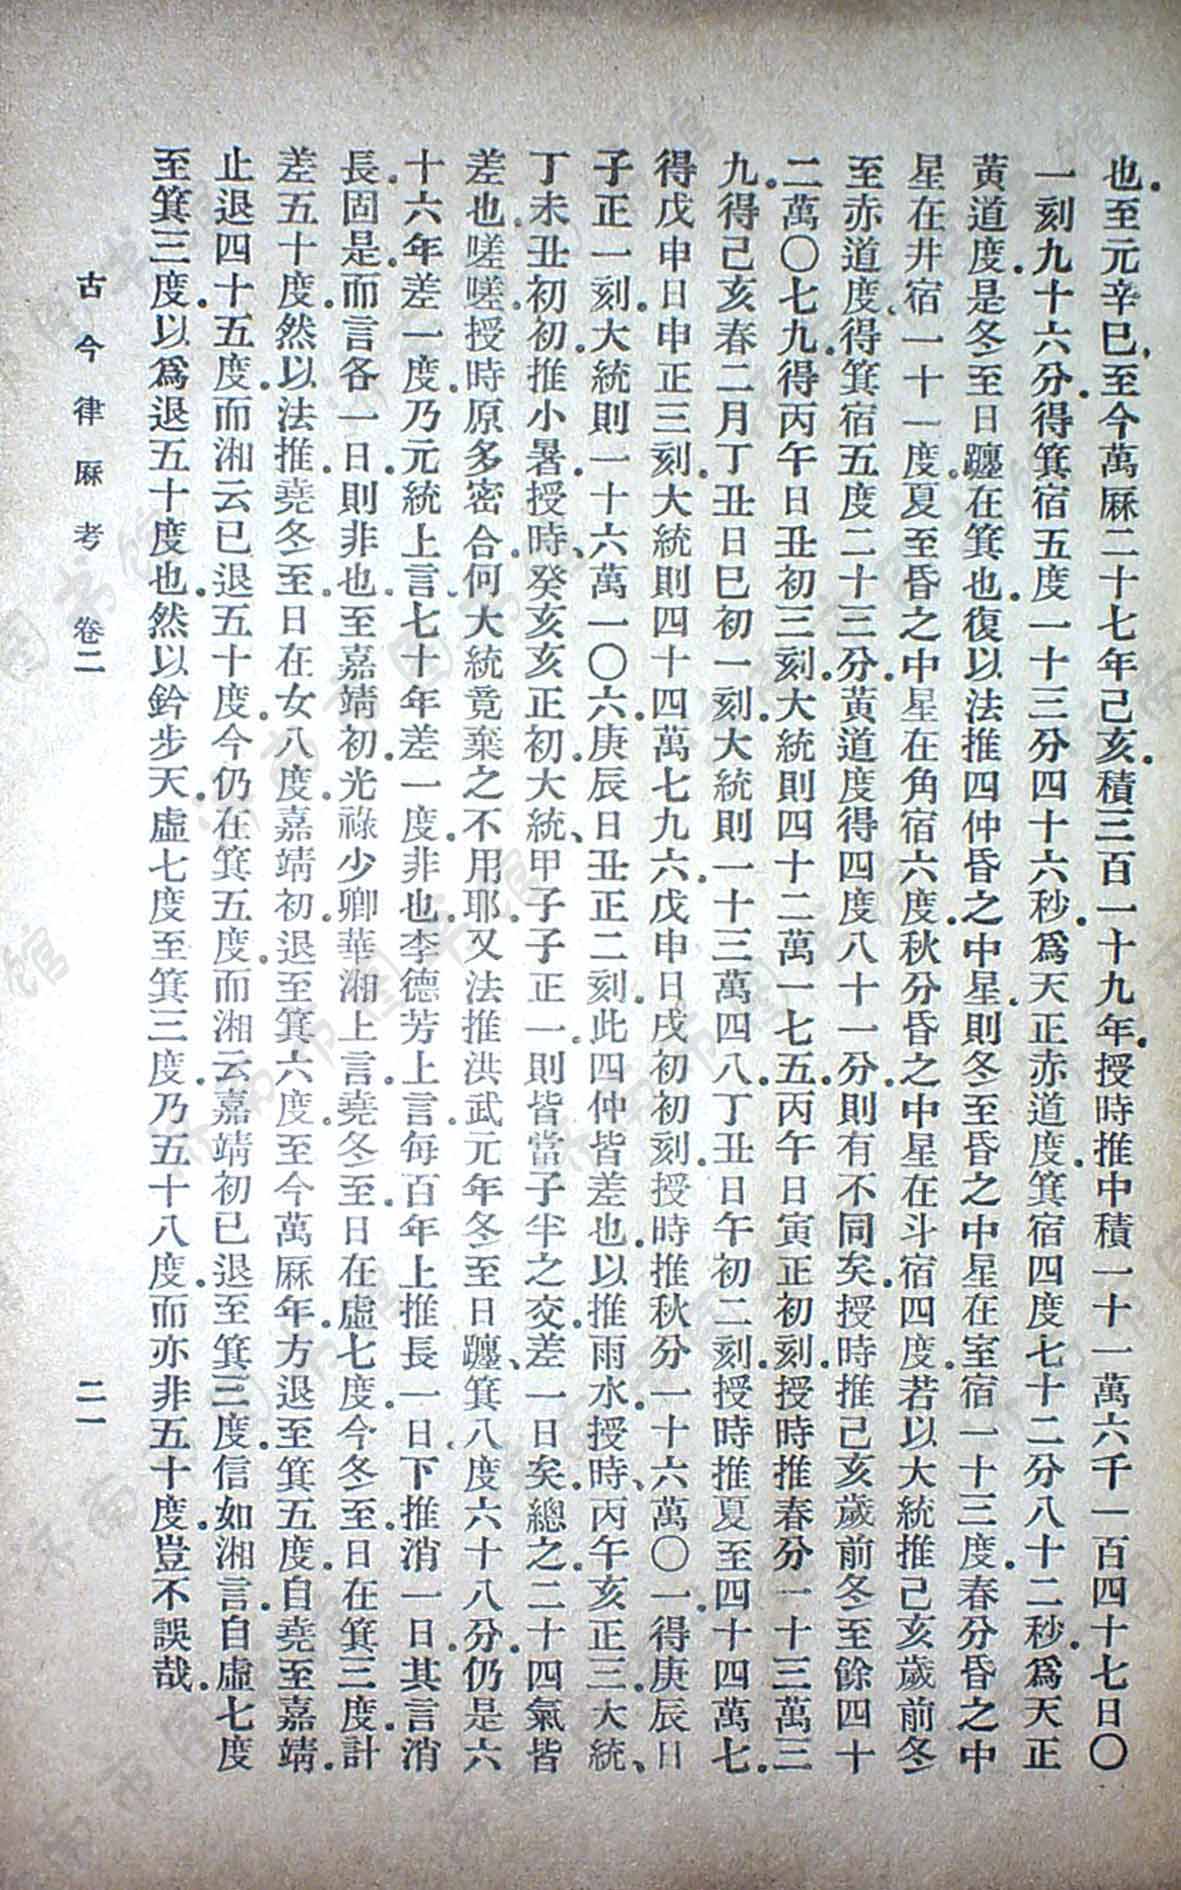 也。至元辛巳、至今萬厤二十七年己亥。積三百一十九年。授時推中積一十一萬六千一百四十七日〇
一刻九十六分。得箕宿五度一十三分四十六秒。爲天正赤道度。箕宿四度七十二分八十二秒。爲天正
黃道度。是冬至日躔在箕也。復以法推四仲昏之中星。則冬至昏之中星在室宿一十三度。春分昏之中
星在井宿一十一度。夏至昏之中星在角宿六度。秋分昏之中星在斗宿四度。若以大統推己亥歲前冬
至赤道度、得箕宿五度二十三分。黃道度得四度八十一分。則有不同矣。授時推己亥歲前冬至餘四十
二萬〇七九。得丙午日丑初三刻。大統則四十二萬一七五。丙午日寅正初刻。授時推春分一十三萬三
九。得己亥春二月丁丑日巳初一刻。大統則一十三萬四八。丁丑日午初二刻。授時推夏至四十四萬七。
得戊申日申正三刻。大統則四十四萬七九六。戊申日戌初初刻。授時推秋分一十六萬〇一。得庚辰日
子正一刻。大統則一十六萬一〇六。庚辰日丑正二刻。此四仲皆差也。以推雨水。授時、丙午亥正三。大統、
丁未丑初初。推小暑。授時、癸亥亥正初。大統、甲子子正一。則皆當子半之交。差一日矣。總之二十四氣皆
差也。嗟嗟。授時原多密合。何大統竟棄之不用耶。又法推洪武元年冬至日躔、箕八度六十八分。仍是六
十六年差一度。乃元統上言。七十年差一度。非也。李德芳上言。每百年上推長一日、下推消一日。其言消
長。固是。而言各一日。則非也。至嘉靖初。光祿少卿華湘上言。堯冬至日在虛七度。今冬至日在箕三度。計
差五十度。然以法推。堯冬至日在女八度。嘉靖初。退至箕六度。至今萬厤年。方退至箕五度。自堯至嘉靖。
止退四十五度。而湘云已退五十度。今仍在箕五度。而湘云嘉靖初已退至箕三度。信如湘言。自虛七度
至箕三度。以爲退五十度也。然以鈐步天。虛七度至箕三度。乃五十八度。而亦非五十度。豈不誤哉。
古今律厤考 卷二 二一